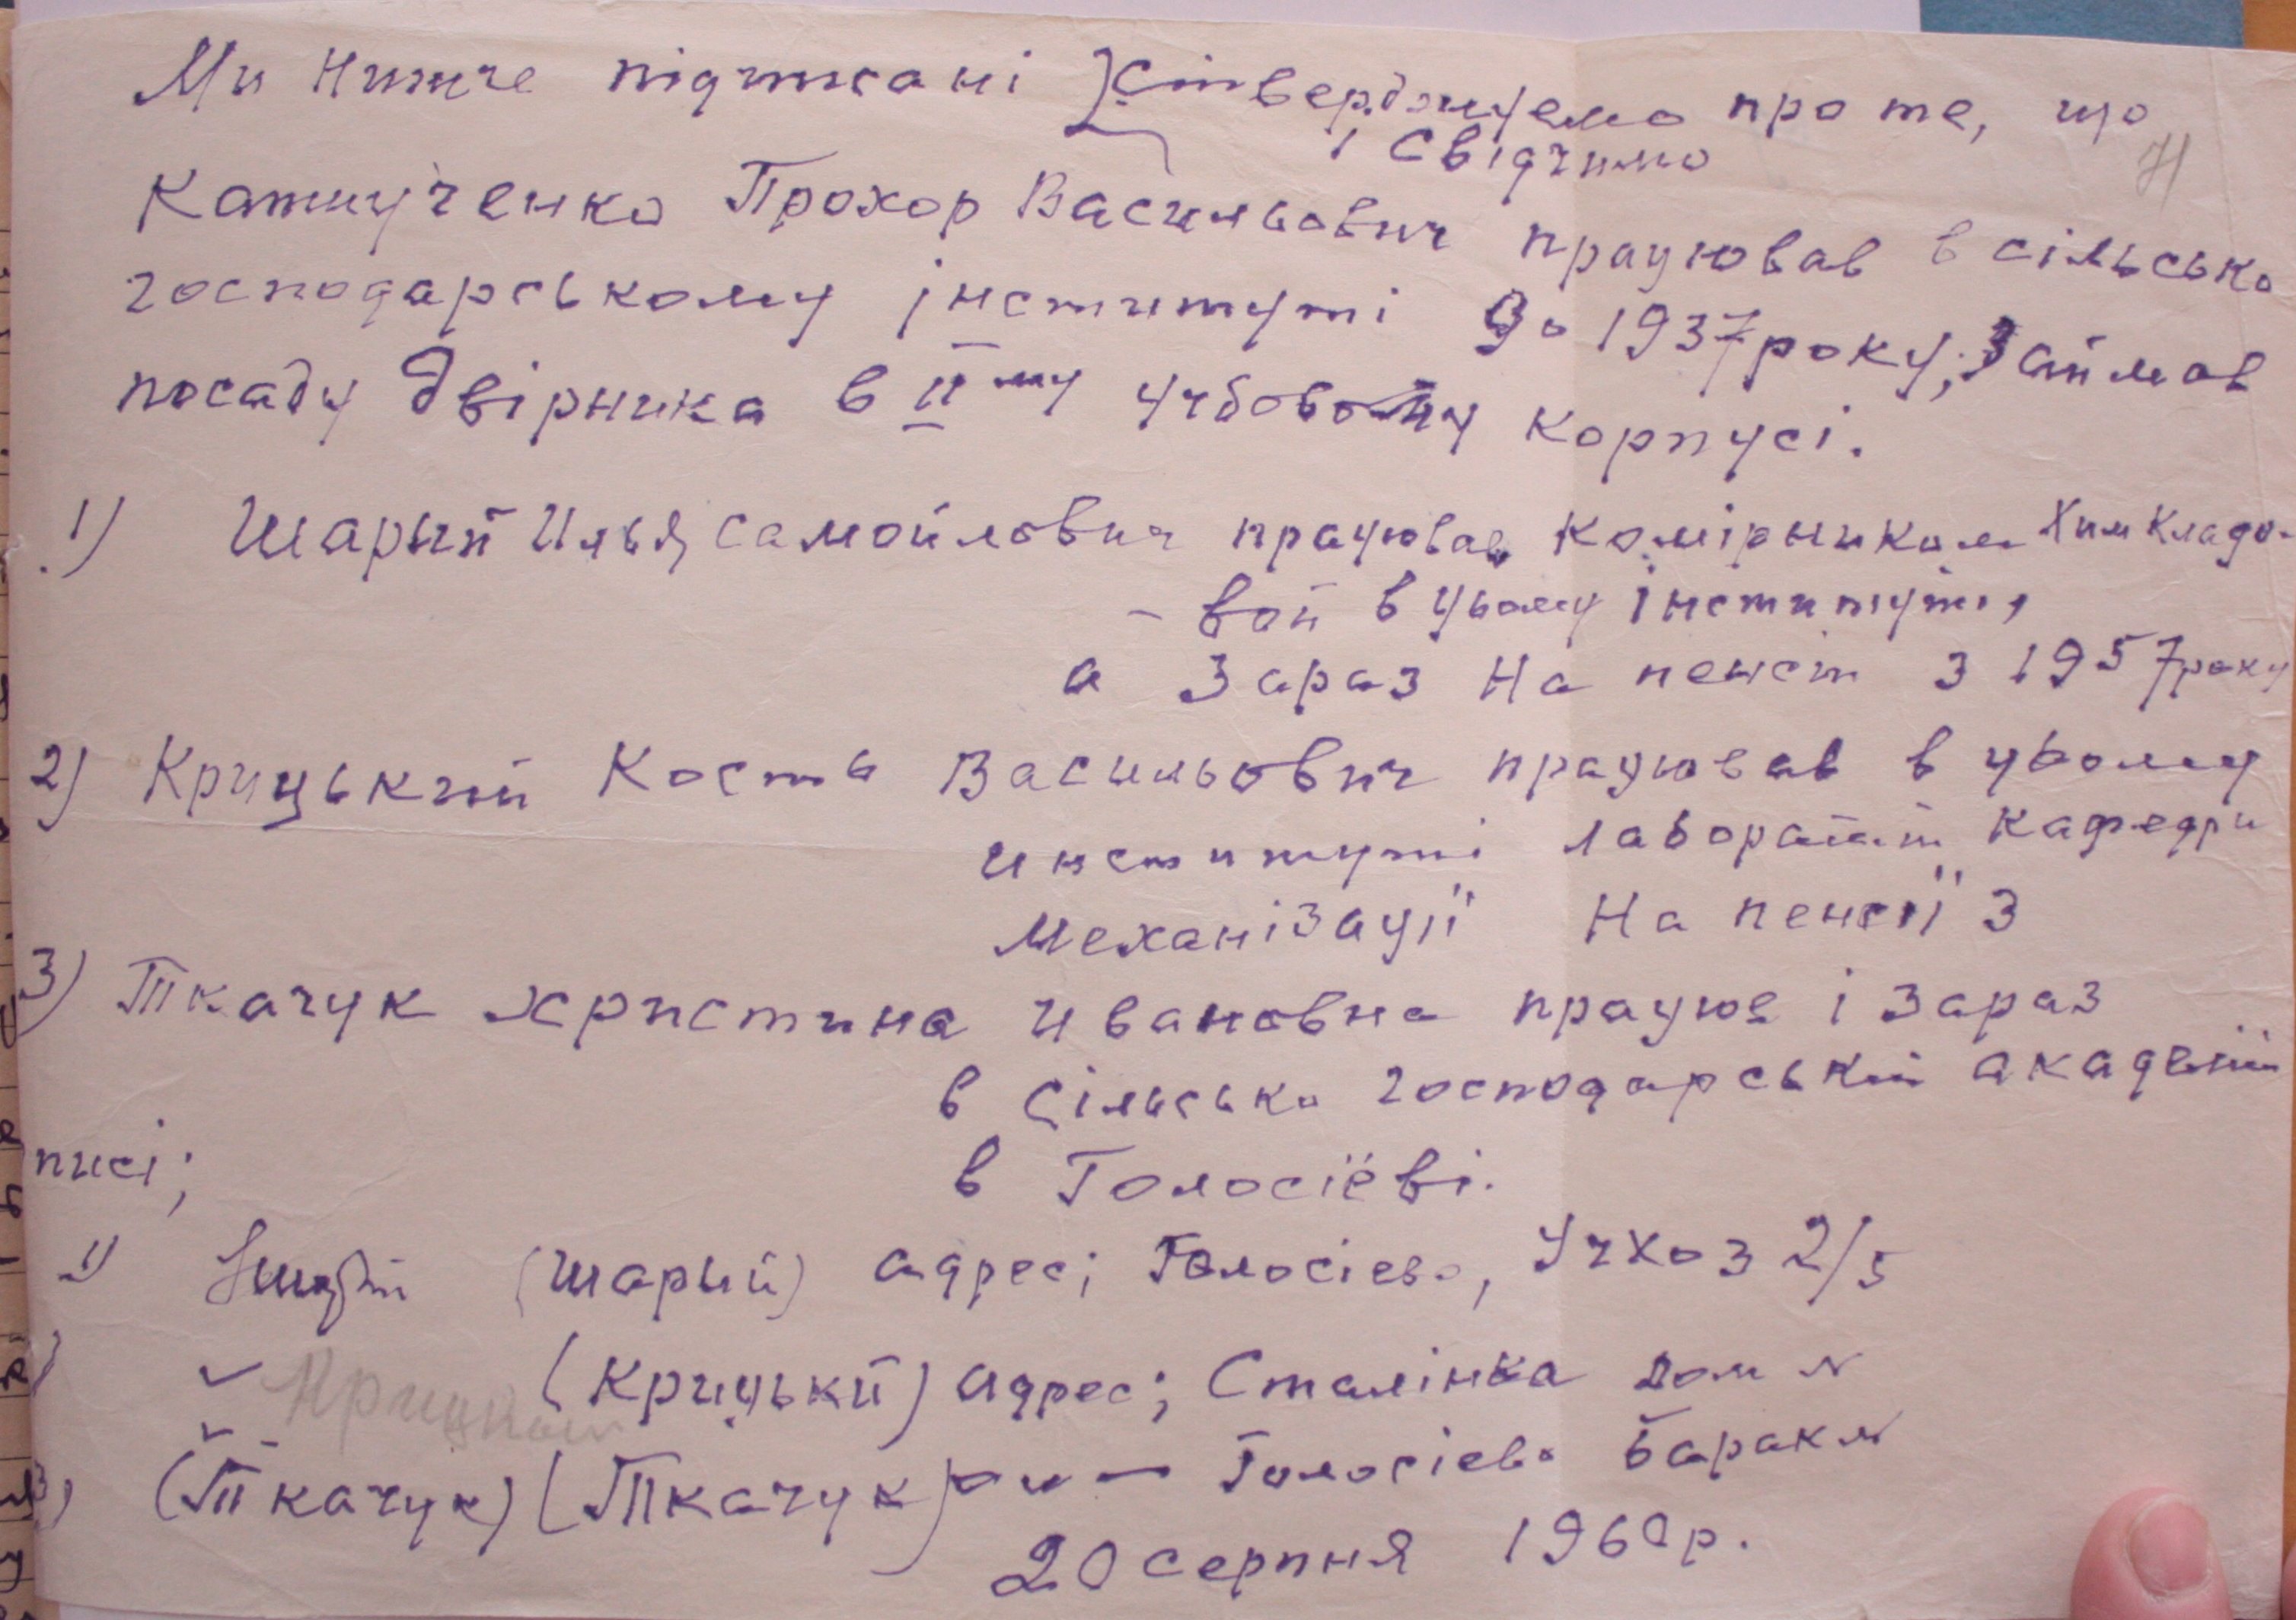 Ми нижче підписані Стверджуємо про те, що
і свідчимо
Прохор Васильович працював в сільсько
господарському інституті до 1937 року, займав
посаду двірника в ІІ-му учбовому корпусі.
1) Шарый Илья Самойлович працював комірником Химкладо-
- вой в цьому інституті,
а зараз на пенсії з 1957 року
2) Крицький Кость Васильович працював в цьому
институті кафедри
механізації На пенсії з
3) Ткачук Христина Ивановна працює і зараз
в сільсько господарській академії
в Голосіеві.
писі;
1) (Шарый) адрес; Голосіево, Учхоз 2/5
(Крицький) адрес; Сталінка дом №
3) (Ткачук) (Ткачук) — и — Голосіево барак №
20 серпня 1960 р.